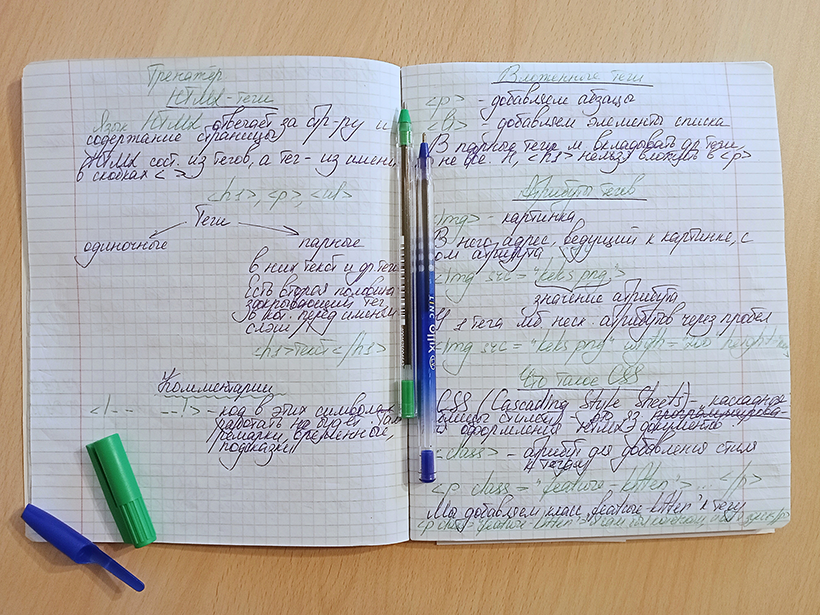 Тренажёр
HTML-теги
Язык HTML отвечает за стр-ру и
содержание страницы
HTML сост. из тегов, а тег - из имени
в скобках < >
<h1>, <p>, <ul>
Теги
одиночные парные
в них текст и др. теги
Есть вторая половина -
закрывающий тег
В кот. перед именем
слэш /
<h1>текст</h1>
Комментарии
<!-- --!> - код в этих символах
работать не будет. Там
ремарки, временные,
подсказки
Вложенные теги
<p> - добавляем абзацы
- добавляем элементы списка
В парные теги м. вкладывать др. теги,
но не все. Н, <h1> нельзя вложить в <p>
Атрибуты тегов
<img> - картинка
В него адрес, ведущий к картинке, с
атрибута
<img src = "keks.png">
значение атрибута
У 1 тега мб неск. атрибутов через пробел
<img src = "keks.png" height
Что такое CSS
CSS (Cascading Style Sheets) - каскадные
таблицы стилей это яз.
оформления HTML документо
<class> - атрибут для добавления стиля
к тегам
<p class = "feature-kitten"> ... </p>
Мы добавляем класс „feature-kitten" к тегу
<p class="feature-kitten">
LINC